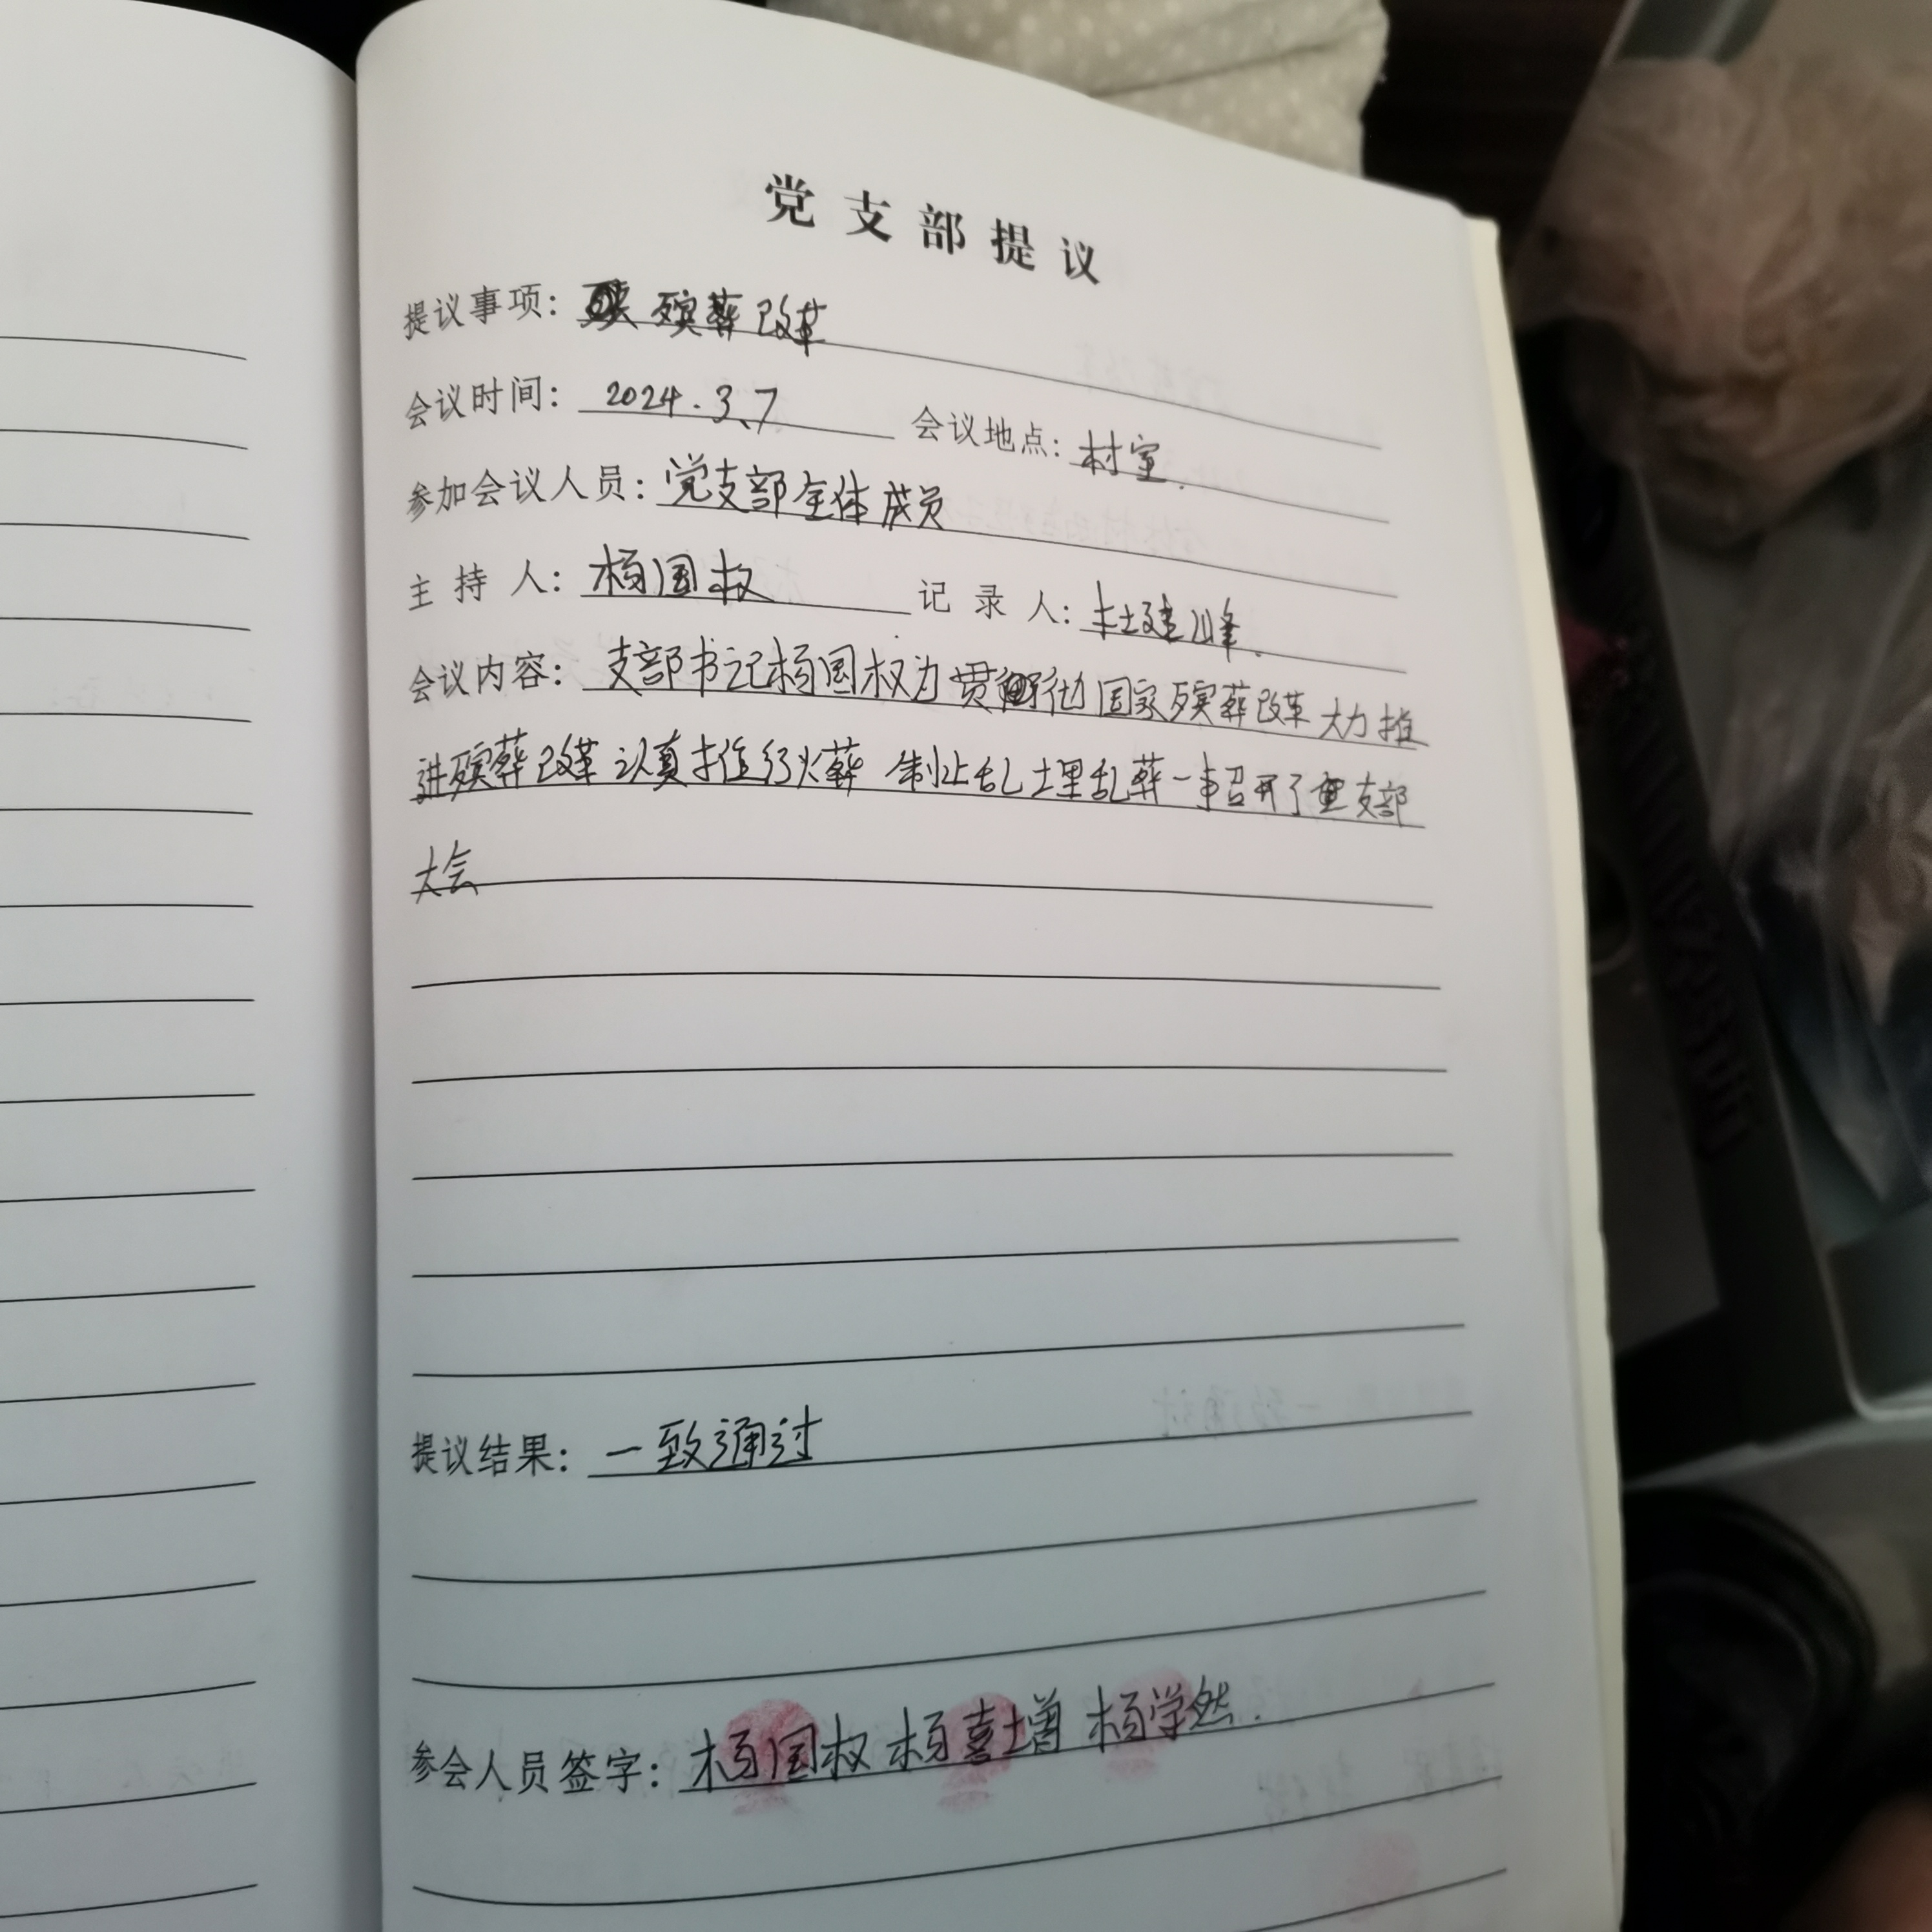 党支部提议
提议事项：殡葬改革
会议时间：2024.3.7 会议地点：村室.
参加会议人员：党支部全体成员
主持人：杨国权 记录人：杜建峰.
会议内容：支部书记杨国权为贯彻国家殡葬改革大力推
进殡葬改革认真推行火葬 制止乱埋乱葬一事召开了支部
大会
提议结果：一致通过
参会人员签字：杨国权 杨喜增 杨学然.